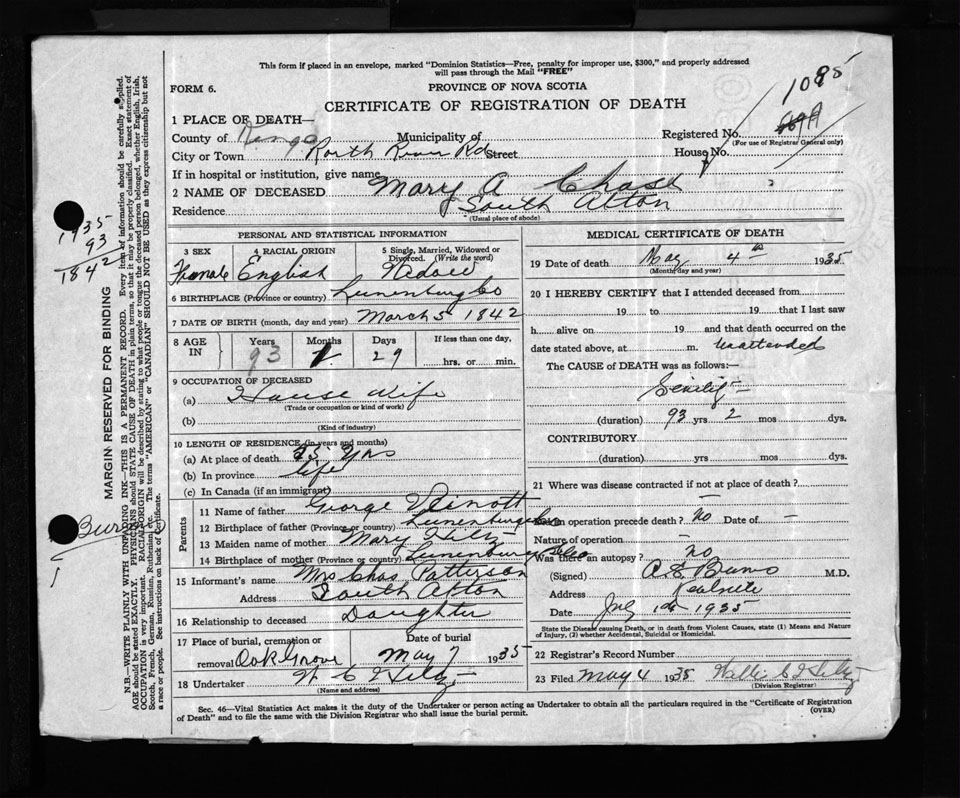 This form if placed in an envelope, marked "Dominion Statistics—Free, penalty for improper use, $300," and properly addressed
will pass through the Mail "FREE"
FORM 6.
PROVINCE OF NOVA SCOTIA
1085
CERTIFICATE OF REGISTRATION OF DEATH
1 PLACE OF DEATH—
County of Kings Municipality of Registered No.
(For use of Registrar General only)
City or Town Road Street House No.
If in hospital or institution, give name
2 NAME OF DECEASED Mary A Chase
Residence South Alton
(Usual place of abode)
PERSONAL AND STATISTICAL INFORMATION
3 SEX 4 RACIAL ORIGIN 5 Single, Married, Widowed or Divorced. (Write the word)
Female English Widow
6 BIRTHPLACE (Province or country) Lunenburg Co
7 DATE OF BIRTH (month, day and year) March 5 1842
8 AGE IN Years Months Days If less than one day,
93 1 29 hrs. or min.
9 OCCUPATION OF DECEASED
(a) House Wife
(Trade or occupation or kind of work)
(b)
(Kind of industry)
10 LENGTH OF RESIDENCE (in years and months)
(a) At place of death Yrs
(b) In province life
(c) In Canada (if an immigrant)
Parents
11 Name of father George
12 Birthplace of father (Province or country) Lunenburg Co
13 Maiden name of mother Mary
14 Birthplace of mother (Province or country) Lunenburg Co
15 Informant's name Mrs Chas Patterson
Address South Alton
16 Relationship to deceased Daughter
17 Place of burial, cremation or removal Oak Grove Date of burial May 7 1935
18 Undertaker W C
(Name and address)
MEDICAL CERTIFICATE OF DEATH
19 Date of death May 4th 1935
(Month, day and year)
20 I HEREBY CERTIFY that I attended deceased from
19 to 19 that I last saw
h alive on 19 and that death occurred on the
date stated above, at m. Unattended
The CAUSE OF DEATH was as follows:—
Senility
(duration) 93 yrs 2 mos dys.
CONTRIBUTORY
(duration) yrs mos dys.
21 Where was disease contracted if not at place of death?
—
Did an operation precede death? No Date of —
Nature of operation —
Was there an autopsy? No
(Signed) M.D.
Address Kentville
Date 1935
State the Disease causing Death, or in death from Violent Causes, state (1) Means and Nature
of Injury, (2) whether Accidental, Suicidal or Homicidal.
22 Registrar's Record Number
23 Filed May 4 1935
(Division Registrar)
Sec. 46—Vital Statistics Act makes it the duty of the Undertaker or person acting as Undertaker to obtain all the particulars required in the "Certificate of Registration
of Death" and to file the same with the Division Registrar who shall issue the burial permit.
(OVER)
1935
93
1842
MARGIN RESERVED FOR BINDING
N.B.—WRITE PLAINLY WITH UNFADING INK—THIS IS A PERMANENT RECORD. Every item of information should be carefully supplied.
AGE should be stated EXACTLY. PHYSICIANS should STATE CAUSE OF DEATH in plain terms, so that it may be properly classified. Exact statement of
OCCUPATION is very important. RACIAL ORIGIN will be described by stating to what people or tongue the deceased person belonged, whether English, Irish,
Scotch, French, German, Russian, Ruthenian, etc. The terms "AMERICAN" or "CANADIAN" SHOULD NOT BE USED as they express citizenship but not
a race or people. See instructions on back of Certificate.